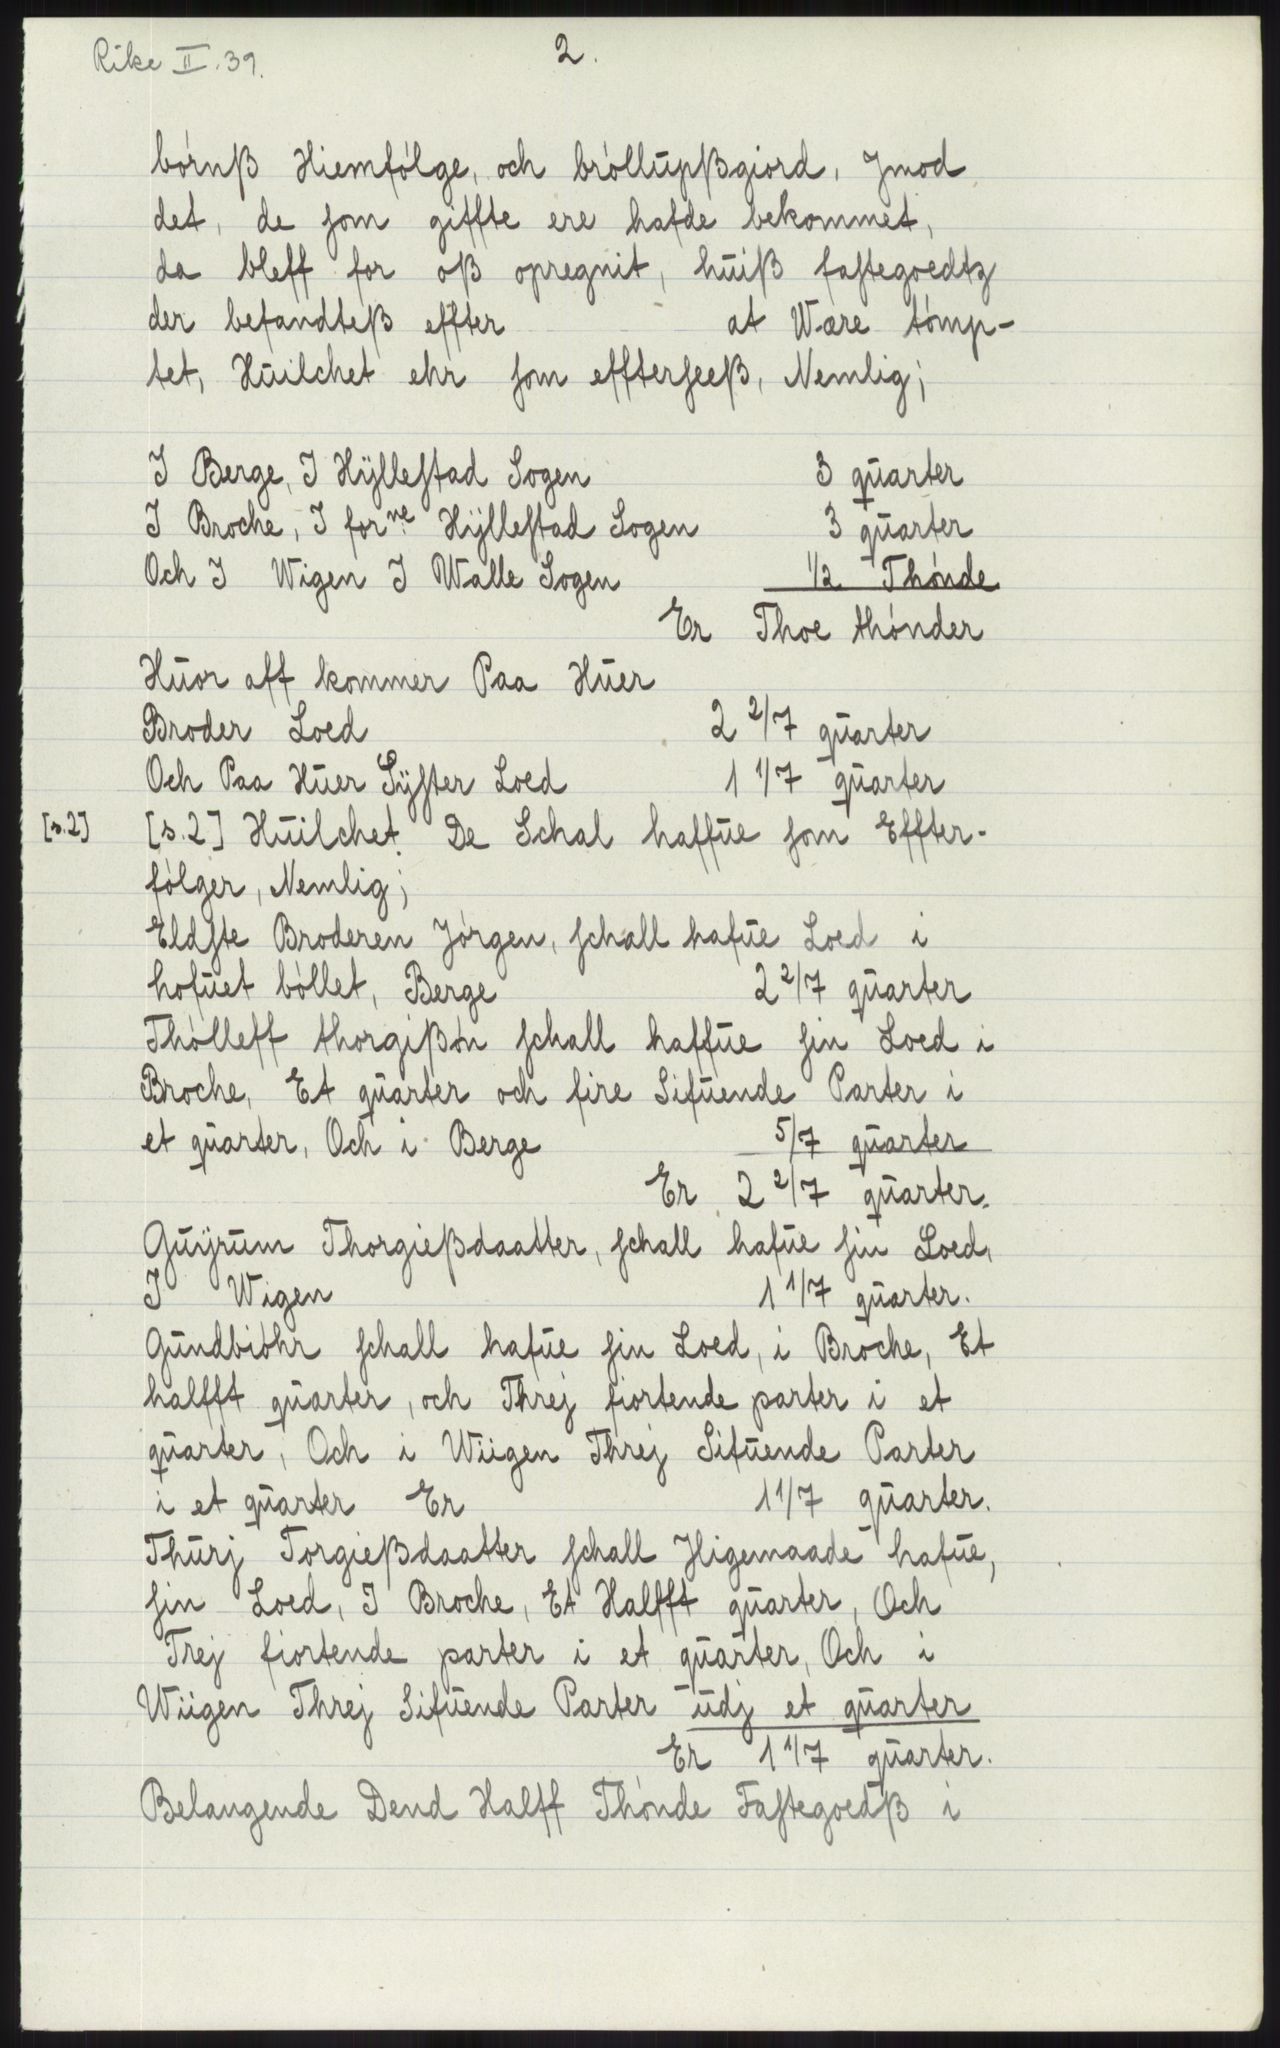 Rike II. 39.
2.
bórnß Hiemfólge, och bróllupßgiord, Jmod
det, de som giffte ere hafde bekommet,
da bleff for oß opregnit, huiß fastegoedtz
der befandteß effter at Wære tómp-
tet, Huilchet ehr som effterseeß, Nemlig;
I Berge, I Hÿllestad Sogen 3 quarter
I Broche, I forne Hÿllestad Sogen 3 quarter
Och I Wigen I Walle Sogen 1/2 Thónde
Er Thoe thónder
Huor aff kommer Paa Huer
Broder Loed 2 2/7 quarter
Och Paa Huer Sÿster Loed 1 1/7 quarter
[s.2] [s.2] Huilchet De Schal haffue som Effter-
fólger, Nemlig;
Eldste Broderen Jórgen, schall hafue Loed i
hofuet bóllet, Berge 2 2/7 quarter
Thólleff thorgißón schall haffue sin Loed i
Broche, Et quarter och fire Sifuende Parter i
et quarter, Och i Berge 5/7 quarter
Er 2 2/7 quarter.
Guÿrum Thorgießdaatter, schall hafue sin Loed,
I Wigen 1 1/7 quarter.
Gundbióhr schall hafue sin Loed, i Broche, Et
halfft quarter, och Threj fiortende parter i et
quarter, Och i Wiigen Threj Sifuende Parter
i et quarter Er 1 1/7 quarter.
Thurj Torgießdaatter schall Jligemaade hafue,
sin Loed, I Broche, Et Halfft quarter, Och
Trej fiortende parter i et quarter, Och i
Wiigen Threj Sifuende Parter udj et quarter
Er 1 1/7 quarter.
Belangende Dend Halff Thónde Fastegoedß i